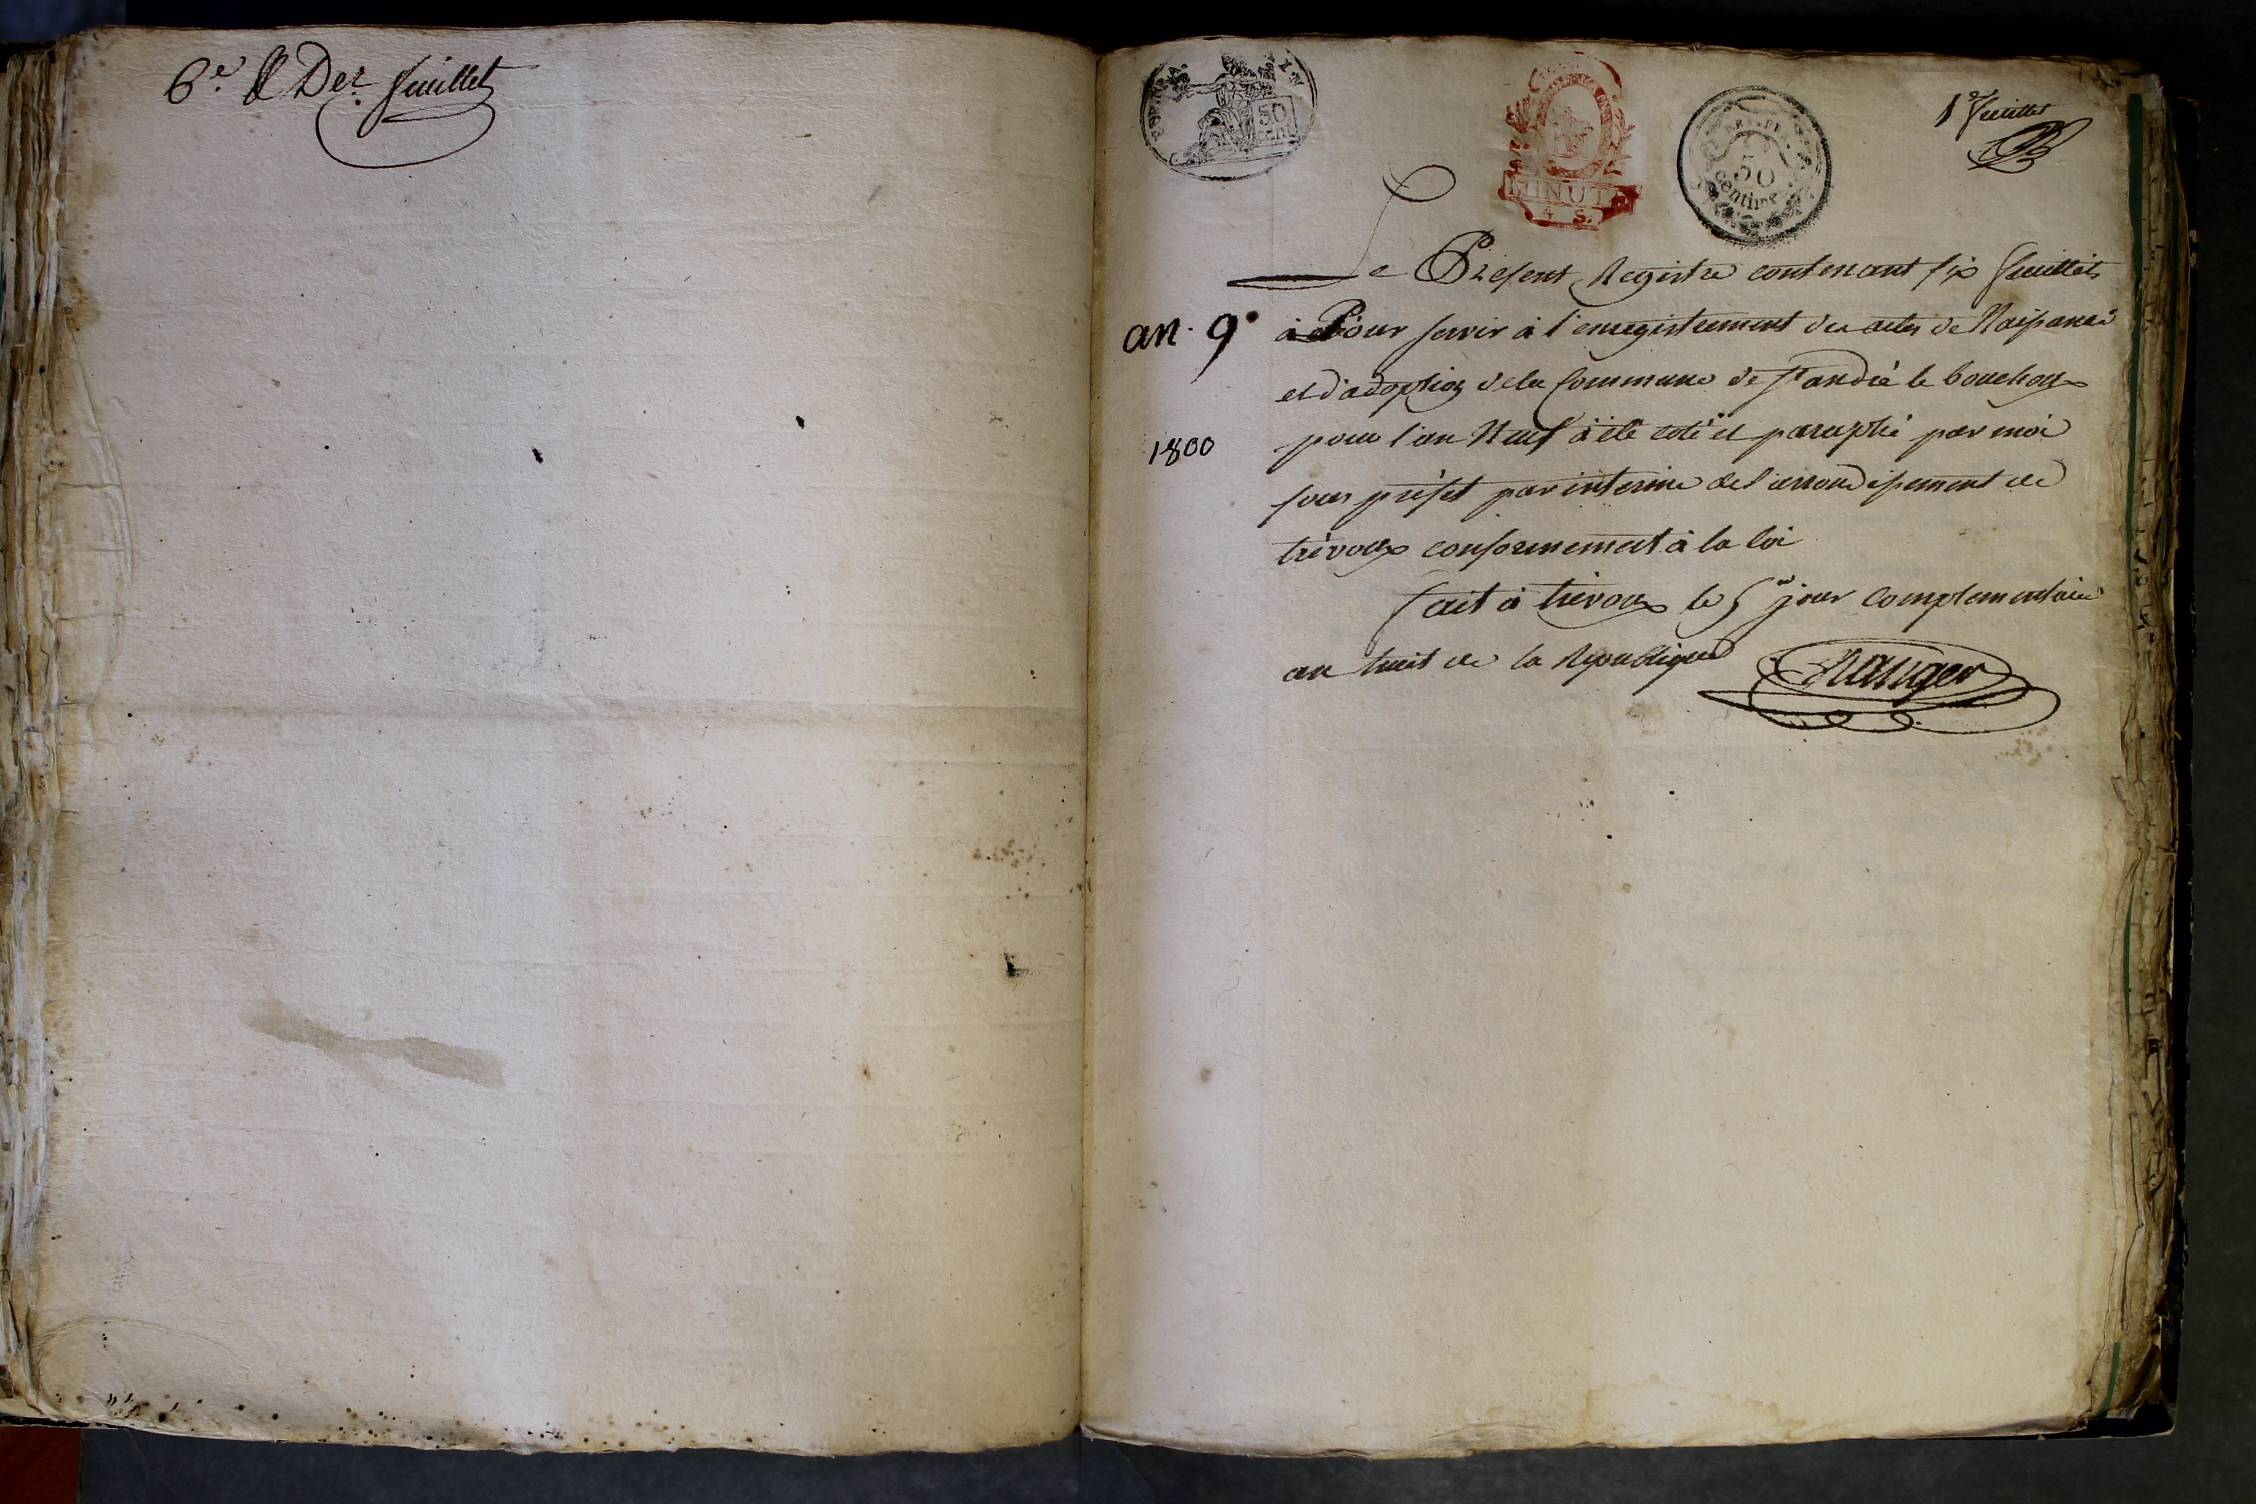 6.e & Der. feuillet
50
cen
MINUTE
4 S.
50
centimes
1er feuillet
Le Présent Registre contenant six feuillets
an. 9e
à Pour servir à l'enregistrement des actes de Naissance
et d'adoption de la Commune de St andré le bouchoux
1800
pour l'an Neuf à été coté et paraphé par moi
sous préfet par interime de l'arrondissement de
trévoux conformement à la loi
fait à trévoux le 5me jour complementaire
an huit de la Republique